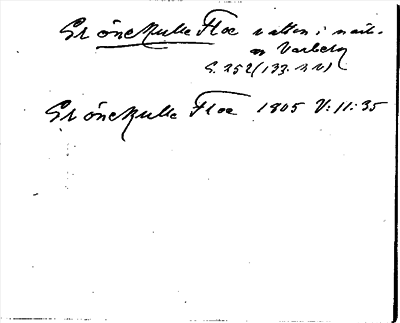 Grönekulle Floe vatten i nordl.
av Varberg
S. 252 (133.
Grönekulle Floe 1805 V:11:35